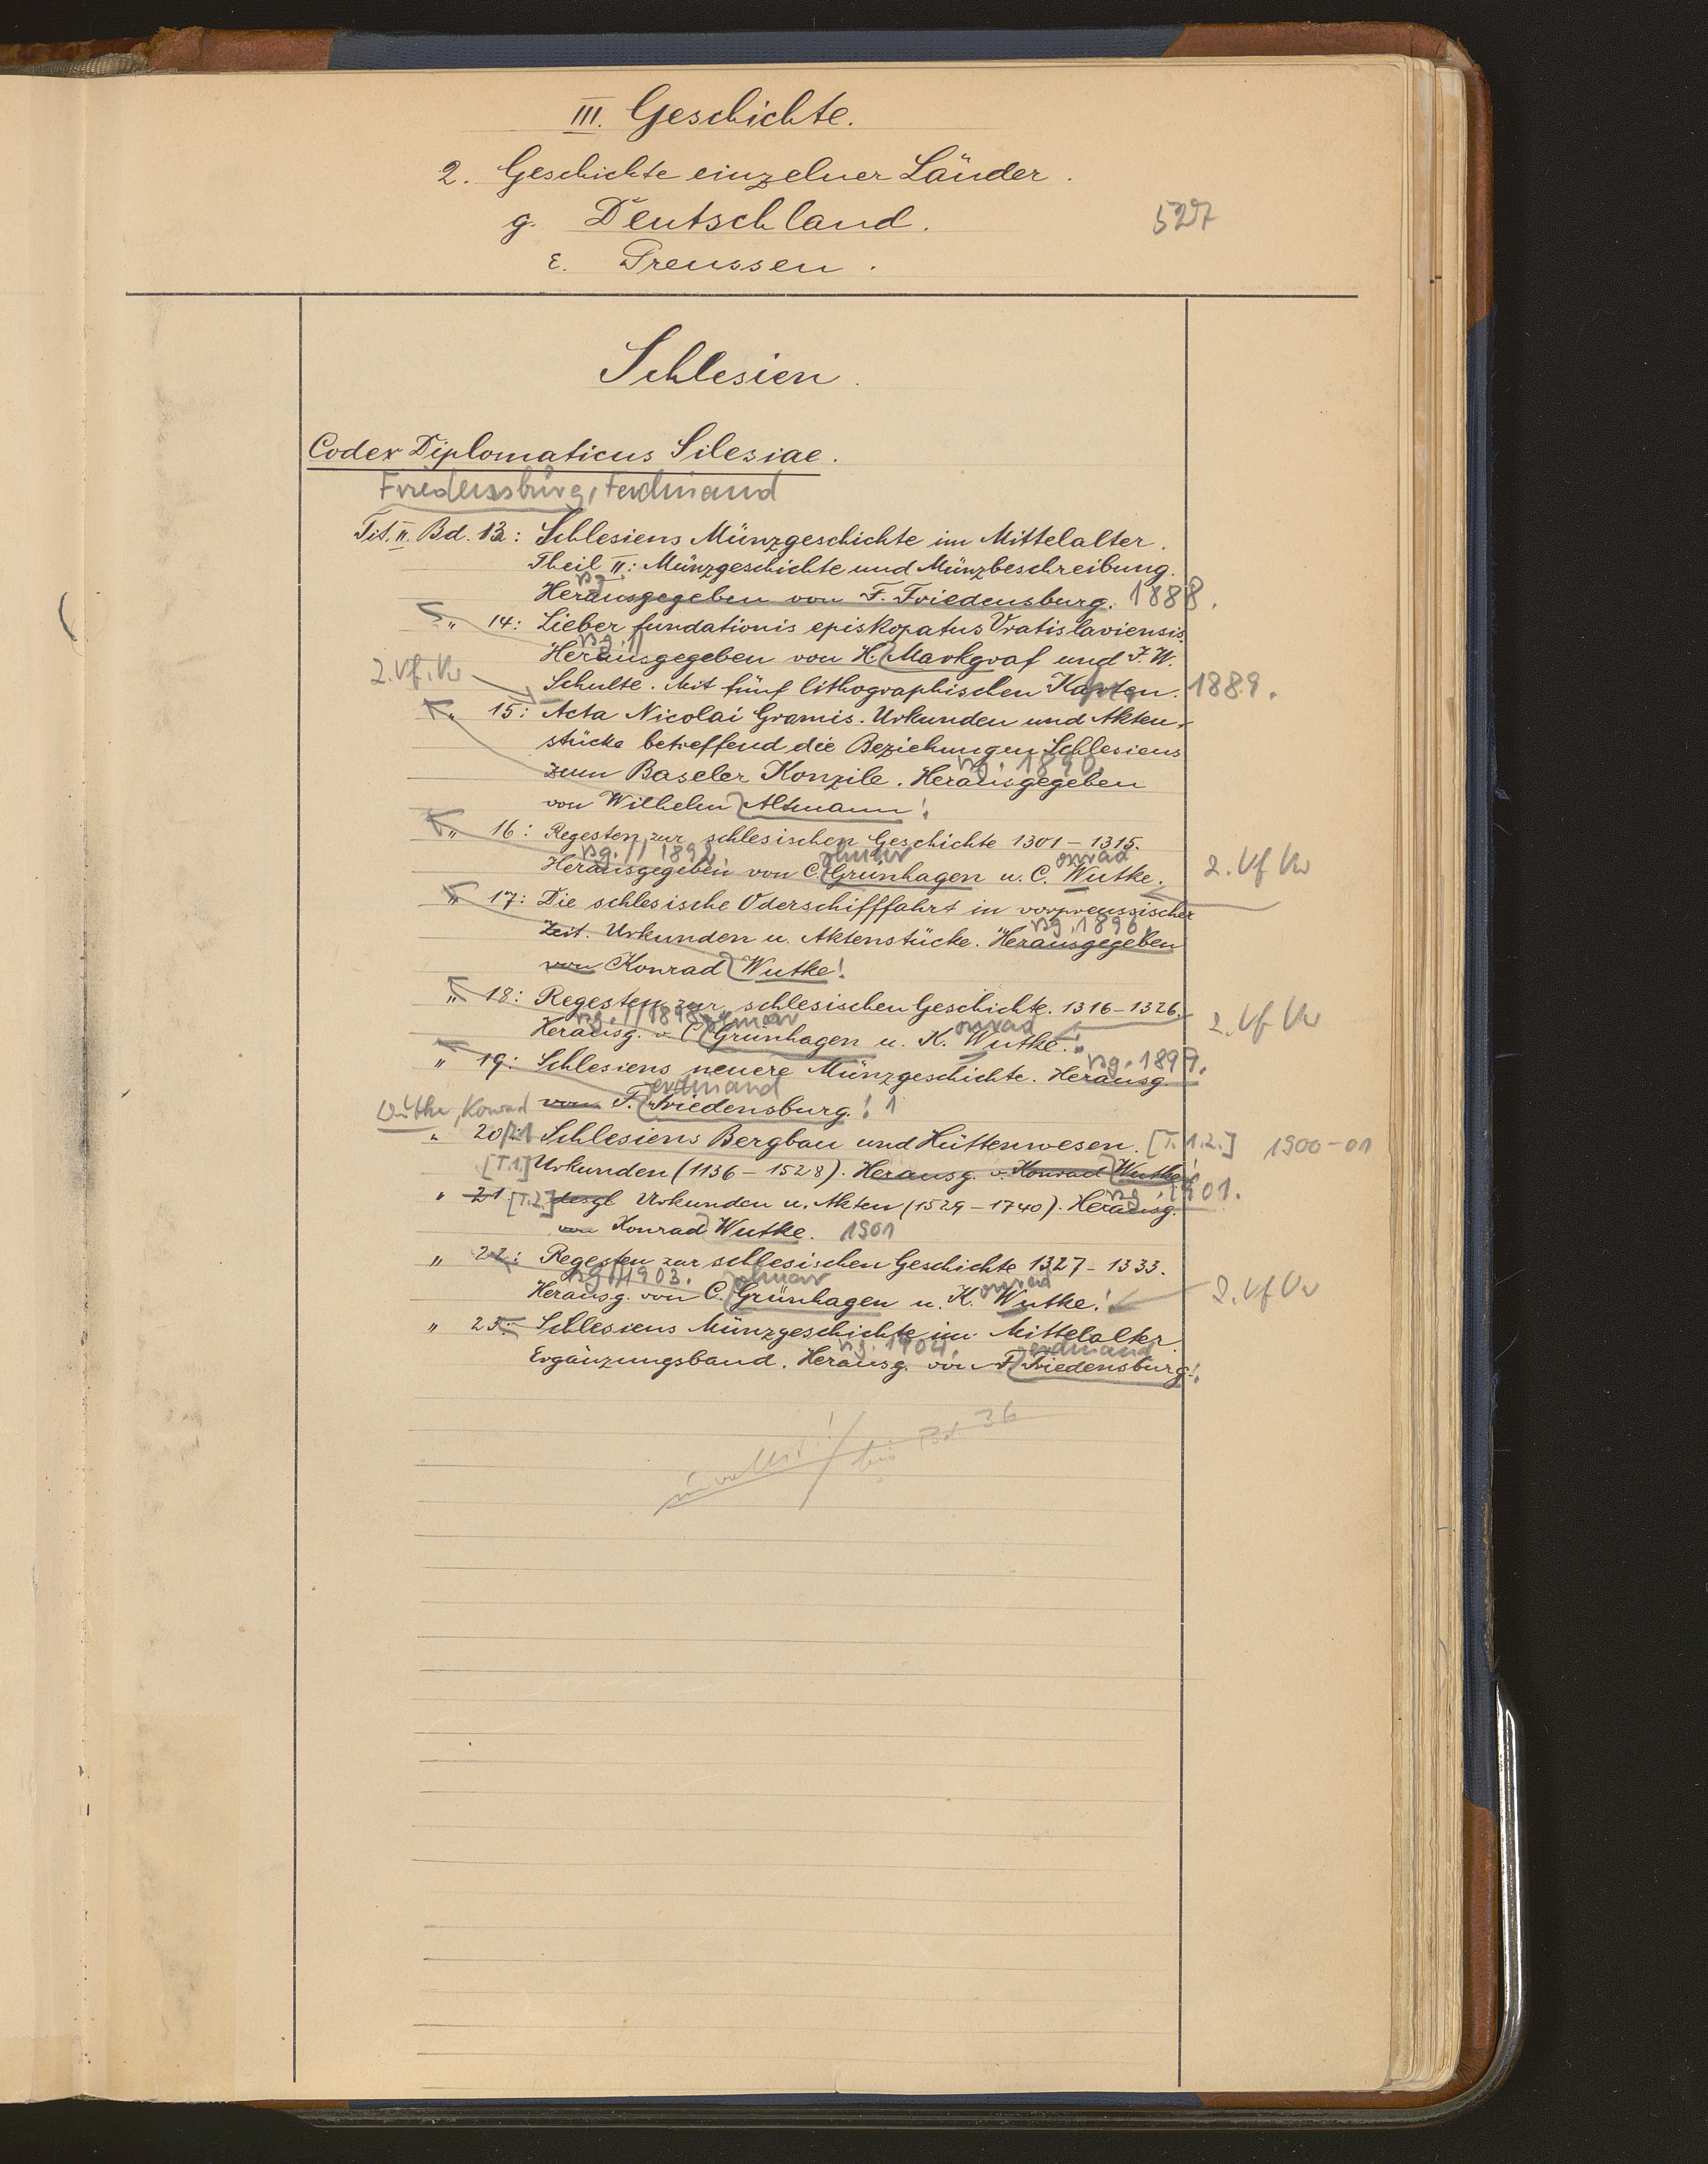 III. Geschichte.
2. Geschichte einzelner Länder.
g. Deutschland.
527
ε. Preussen.
Schlesien.
Codex Diplomaticus Silesiae.
Friedensburg, Ferdinand
Tit. II. Bd. 13: Schlesiens Münzgeschichte im Mittelalter.
Theil II: Münzgeschichte und Münzbeschreibung.
Herausgegeben von F. Friedensburg. 1888.
„ 14: Lieber fundationis episkopatus Vratislaviensis.
Herausgegeben von H. Markgraf und J. W.
2. Vf. Vw
Schulte. Mit fünf lithographischen Karten. 1889.
„ 15: Acta Nicolai Gramis. Urkunden und Akten-
stücke betreffend die Beziehungen Schlesiens
zum Baseler Konzile. Herausgegeben
sg. 1890.
von Wilhelm Altmann!
„ 16: Regesten zur schlesischen Geschichte 1301 – 1315.
sg. 1892. olmar onrad
Herausgegeben von C. Grünhagen u. C. Wutke.
2. Vf Vw
„ 17: Die schlesische Oderschifffahrt in vorpreussischer
sg. 1896.
Zeit. Urkunden u. Aktenstücke. Herausgegeben
von Konrad Wutke!
„ 18: Regesten zur schlesischen Geschichte. 1316 – 1326.
sg. 1898. olmar onrad
Herausg. v. C. Grünhagen u. K. Wutke.!
2. Vf Vw
„ 19: Schlesiens neuere Münzgeschichte. Herausg.
sg. 1899.
erdinand
von F. Friedensburg.! 1
Wutke, Konrad
„ 20/21 Schlesiens Bergbau und Hüttenwesen. [T. 1.2.] 1900–01
[T.1.] Urkunden (1136 – 1528). Herausg. v. Konrad Wutke!
„ 21 [T.2.] desgl Urkunden u. Akten (1529 – 1740). Herausg.
sg. 1901.
von Konrad Wutke. 1901
„ 22: Regesten zur schlesischen Geschichte 1327 – 1333.
sg. 1903. olmar onrad
Herausg. von C. Grünhagen u. K. Wutke!
2. Vf Vw
„ 23: Schlesiens Münzgeschichte im Mittelalter.
sg. 1904. erdinand
Ergänzungsband. Herausg. von F. Friedensburg!
bis Bd 36